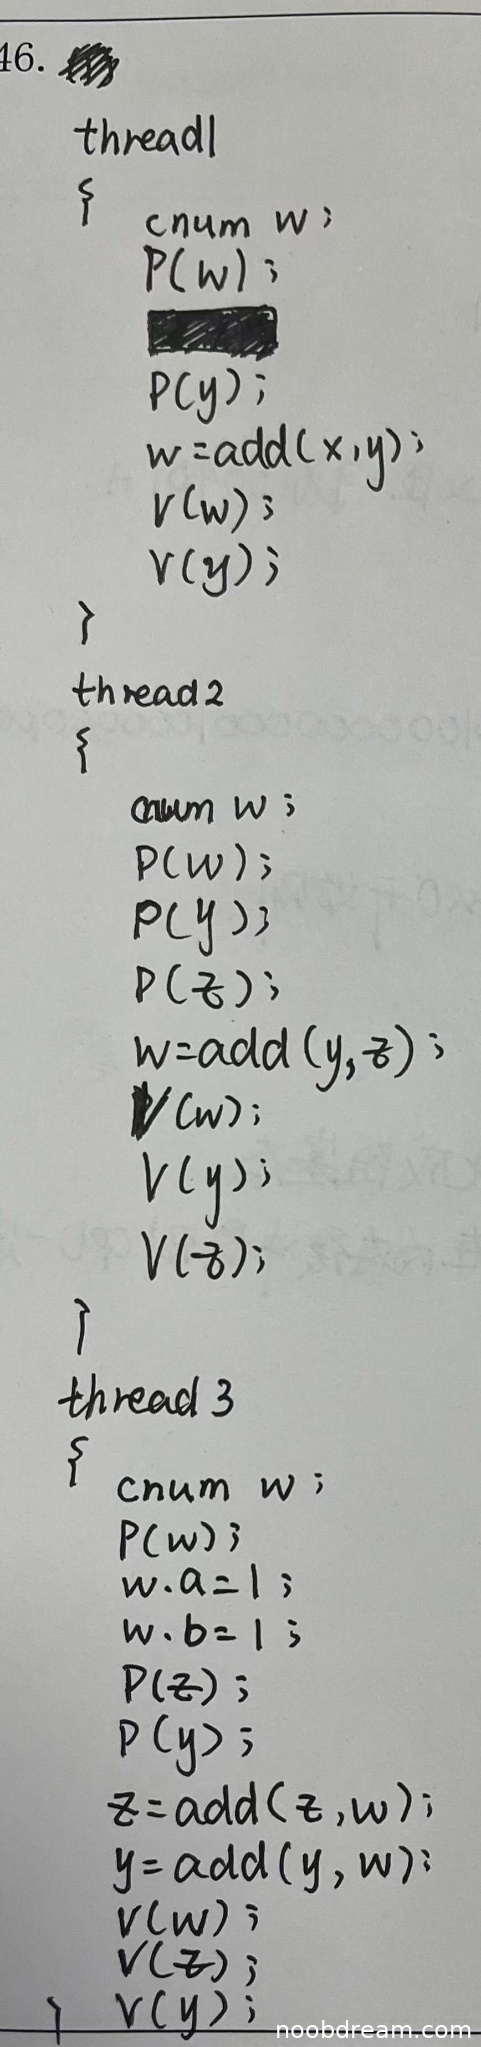 46.
thread1
{
cnum w;
P(w);
P(y);
w=add(x,y);
V(w);
V(y);
}
thread2
{
cnum w;
P(w);
P(y);
P(z);
w=add(y,z);
V(w);
V(y);
V(z);
}
thread 3
{
cnum w;
P(w);
w.a=1;
w.b=1;
P(z);
P(y);
z=add(z,w);
y=add(y,w);
V(w);
V(z);
} V(y);
noobdream.com